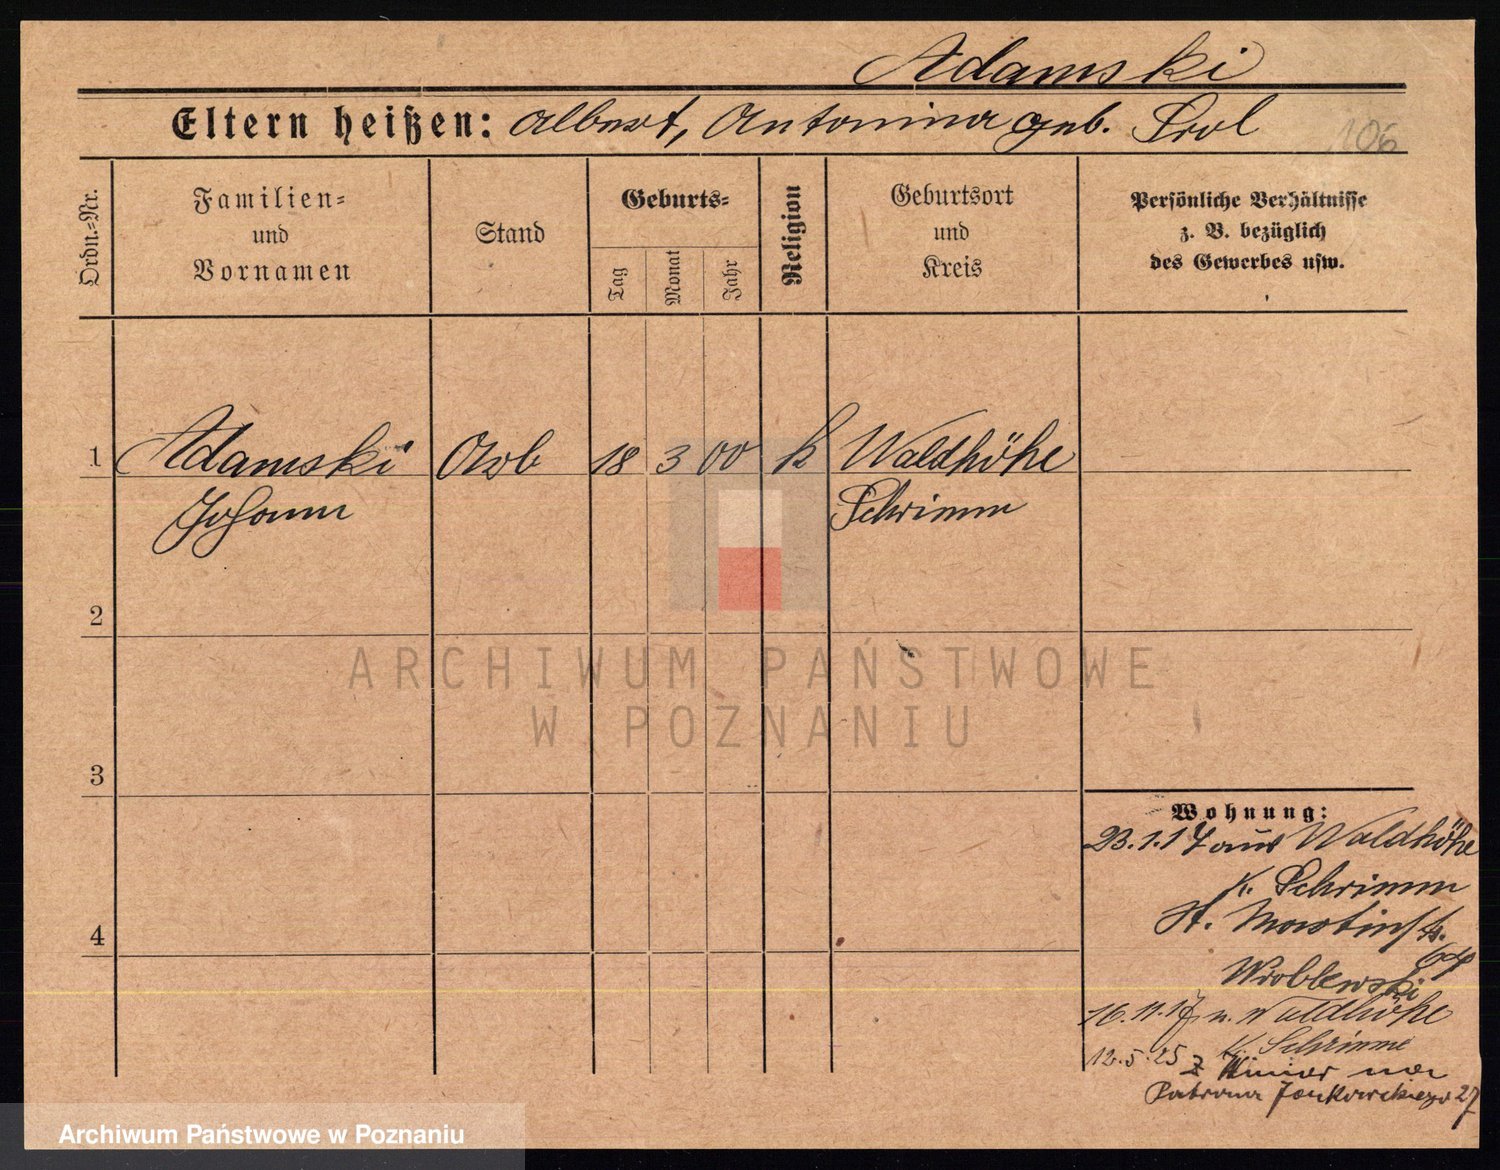 Adamski
Eltern heißen: Albert, Antonina geb. Srol
106
Ordn.-Nr.
Familien-
und
Vornamen
Stand
Geburts-
Tag
Monat
Jahr
Religion
Geburtsort
und
Kreis
Persönliche Verhältnisse
z. B. bezüglich
des Gewerbes usw.
1 Adamski 18 3 00 k Waldhöhe
Johann Schrimm
2
3
4
Wohnung:
23.1.17 aus Waldhöhe
K. Schrimm
St. Martinstr.
Wroblewski
16.11.17 n. Waldhöhe
K. Schrimm
12.5.25 z Winiar na
Patrona Jankowskiego 27
ARCHIWUM PAŃSTWOWE
W POZNANIU
Archiwum Państwowe w Poznaniu